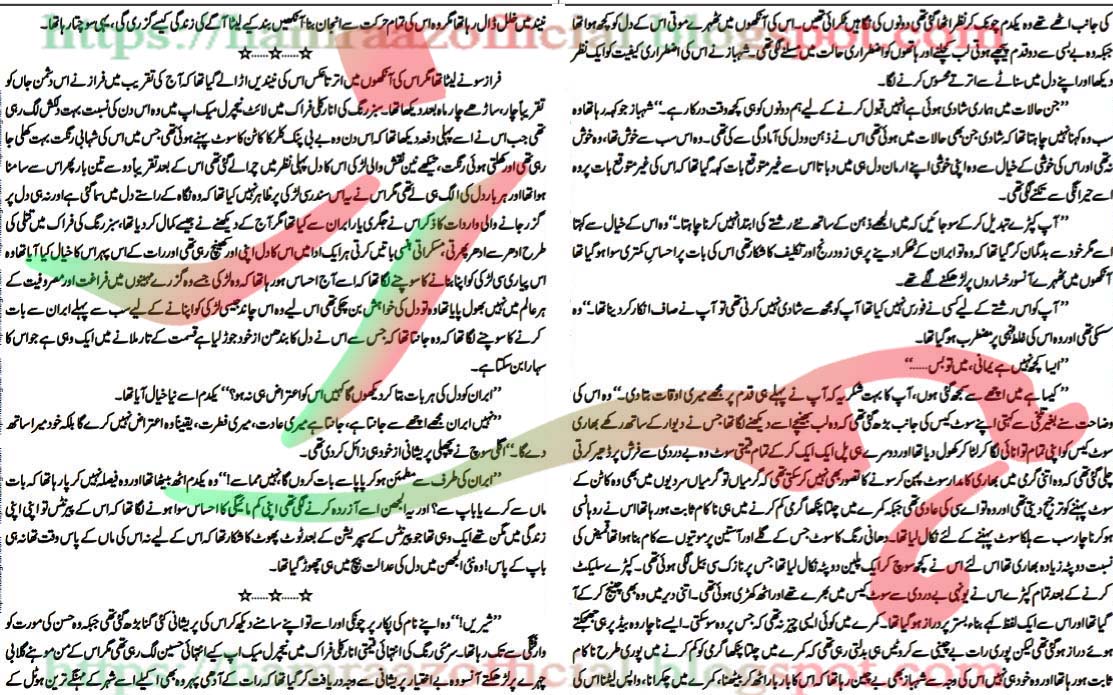 کی جانب اٹھے تھے وہ یکدم چونک کر نظر اٹھا گئی تھی دونوں کی نگاہیں ٹکرائی تھیں۔ اس کی آنکھوں میں ٹھہرے موتی اس کے دل کو کچھ ہوا تھا
جبکہ وہ بے بسی سے دو قدم پیچھے ہوئی لب کچلنے اور ہاتھوں کو اضطراری حالت میں مسلنے لگی تھی۔ شہباز نے اس کی اضطراری کیفیت کو ایک نظر
دیکھا اور اپنے دل میں سناٹے سے اترتے محسوس کرنے لگا۔
’’جن حالات میں ہماری شادی ہوئی ہے انہیں قبول کرنے کے لیے ہم دونوں کو ہی کچھ وقت درکار ہے۔‘‘ شہباز جو کہہ رہا تھا وہ
سب وہ کہنا نہیں چاہتا تھا کہ شادی جن بھی حالات میں ہوئی تھی اس نے ذہن و دل کی آمادگی سے کی تھی۔ وہ اس سب سے خوش تھا، وہ خوش
تھی اور اس کی خوشی کے خیال سے وہ اپنی خوشی اپنے ارمان دل ہی میں دباتا اس سے غیر متوقع بات کہہ گیا تھا کہ اس کی غیر متوقع بات پر وہ
اسے حیرانگی سے تکنے لگی تھی۔
’’آپ کپڑے تبدیل کر کے سو جائیں کہ میں الجھے ذہن کے ساتھ نئے رشتے کی ابتدا نہیں کرنا چاہتا۔‘‘ وہ اس کے خیال سے کہتا
اسے مگر خود سے بدگمان کر گیا تھا کہ وہ تو ایران کے ٹھکرا دینے پر ہی زود رنج اور تکلیف کا شکار تھی اس کی بات پر احساسِ کمتری سوا ہو گیا تھا
آنکھوں میں ٹھہرے آنسو رخساروں پر لڑھکنے لگے تھے۔
’’آپ کو اس رشتے کے لیے کسی نے فورس نہیں کیا تھا آپ کو مجھ سے شادی نہیں کرنی تھی تو آپ نے صاف انکار کر دینا تھا۔‘‘ وہ
سسکی تھی اور وہ اس کی غلط فہمی پر مضطرب ہو گیا تھا۔
’’ایسا کچھ نہیں ہے یمانی، میں تو بس......‘‘
’’کیسا ہے میں اچھے سے سمجھ گئی ہوں، آپ کا بہت شکریہ کہ آپ نے پہلے ہی قدم پر مجھے میری اوقات بتا دی۔‘‘ وہ اس کی
وضاحت سنے بغیر تلخی سے کہتی اپنے سوٹ کیس کی جانب بڑھ گئی تھی وہ لب بھینچے اسے دیکھنے لگا تھا، جس نے دیوار کے ساتھ رکھے بھاری
سوٹ کیس کو اپنی تمام توانائی لگا کر لٹا کر کھول دیا تھا اور دوسرے ہی پل ایک ایک کر کے تمام قیمتی سوٹ وہ بے دردی سے فرش پر ڈھیر کرتی
چلی گئی تھی کہ وہ اتنی گرمی میں بھاری کامدار سوٹ پہن کر سونے کا تصور بھی نہیں کر سکتی تھی کہ گرمیاں تو گرمیاں سردیوں میں بھی وہ کاٹن کے
سوٹ پہننے کو ترجیح دیتی تھی اور وہ تو اے سی کی عادی تھی جبکہ کمرے میں چلتا پنکھا گرمی کم کرنے میں ہی ناکام ثابت ہو رہا تھا اس نے روہانسی
ہو کر ناچار سب سے ہلکا سوٹ پہننے کے لئے نکال لیا تھا۔ دھانی رنگ کا سوٹ جس کے گلے اور آستین پر موتیوں سے کام بنا ہوا تھا قمیض کی
نسبت دوپٹہ زیادہ بھاری تھا اس لئے اس نے کچھ سوچ کر ایک پلین دوپٹہ نکال لیا تھا جس پر نازک سی بیل لگی ہوئی تھی۔ کپڑے سلیکٹ
کرنے کے بعد تمام کپڑے اس نے یونہی بے دردی سے سوٹ کیس میں بھرے تھے اور اٹھ کھڑی ہوئی تھی۔ اتنی دیر میں وہ بھی چینج کر کے آ
گیا تھا اور اس سے ایک لفظ کہے بناء بستر پر دراز ہو گیا تھا۔ کمرے میں کوئی ایسی چیز نہ تھی کہ جس پر وہ سو سکتی۔ ایسے ناچار وہ بیڈ پر ہی جھجکتے
ہوئے دراز ہو گئی تھی لیکن پوری رات بے چینی سے کروٹیں ہی بدلتی رہی تھی کہ کمرے میں چلتا پنکھا گرمی کو کم کرنے میں پوری طرح ناکام
ثابت ہو رہا تھا اور وہ خود ہی نہیں اس کی وجہ سے شہباز بھی بے چین رہا تھا کہ اس کا بار بار اٹھ کر بیٹھنا، کمرے میں چکرانا، واپس لیٹنا اس کی
نیند میں خلل ڈال رہا تھا مگر وہ اس کی تمام حرکت سے انجان بنا آنکھیں بند کیے لیٹا آگے کی زندگی کیسے گزرے گی، یہی سوچتا رہا تھا۔
☆......☆......☆
فراز سونے لیٹا تھا مگر اس کی آنکھوں میں اترتا عکس اس کی نیندیں اڑا لے گیا تھا کہ آج کی تقریب میں فراز نے اس دشمن جاں کو
تقریباً چار، ساڑھے چار ماہ بعد دیکھا تھا۔ سبز رنگ کی انارکلی فراک میں لائٹ نیچرل میک اپ میں وہ اس دن کی نسبت بہت دلکش لگ رہی
تھی جب اس نے اسے پہلی دفعہ دیکھا تھا کہ اس دن وہ بے بی پنک کلر کا کاٹن کا سوٹ پہنے ہوئی تھی جس میں اس کی شہابی رنگت بہت کھلی جا
رہی تھی اور کھلتی ہوئی رنگت، تیکھے نین نقش والی لڑکی اس کا دل پہلی نظر میں چرا لے گئی تھی اس کے بعد تقریباً دو سے تین بار پھر اس سے سامنا
ہوا تھا اور ہر بار دل کی الگ ہی لے تھی مگر اس نے یہ اس سندر سی لڑکی پر ظاہر نہیں کیا تھا کہ وہ نگاہ کے راستے دل میں سما گئی ہے اور نہ ہی دل پر
گزر جانے والی واردات کا ذکر اس نے جگری یار ایران سے کیا تھا مگر آج کے دیکھنے نے جیسے کمال کر دیا تھا، سبز رنگ کی فراک میں تتلی کی
طرح ادھر سے ادھر پھرتی، مسکراتی ہنسی باتیں کرتی ہر ایک ادا میں اس کا دل اپنی اور کھینچ رہی تھی اور رات کے اس پہر اس کا خیال کیا آیا تھا وہ
اس پیاری سی لڑکی کو اپنا بنانے کا سوچنے لگا تھا کہ اسے آج احساس ہو رہا تھا کہ وہ لڑکی جسے وہ گزرے مہینوں میں فراغت اور مصروفیت کے
ہر عالم میں نہیں بھول پایا تھا وہ تو دل کی خواہش بن چکی تھی اس لیے وہ اس چاند جیسی لڑکی کو اپنانے کے لیے سب سے پہلے ایران سے بات
کرنے کا سوچنے لگا تھا کہ وہ جانتا تھا کہ جس سے اس نے دل کا بندھن از خود جوڑ لیا ہے قسمت کے تار ملانے میں ایک وہی ہے جو اس کا
سہارا بن سکتا ہے۔
’’ایران کو دل کی ہر بات بتا کر دیکھوں گا کہیں اس کو اعتراض ہی نہ ہو؟‘‘ یکدم اسے نیا خیال آیا تھا۔
’’نہیں ایران مجھے اچھے سے جانتا ہے، جانتا ہے میری عادت، میری فطرت، یقیناً وہ اعتراض نہیں کرے گا بلکہ خود میرا ساتھ
دے گا۔‘‘ اگلی سوچ نے پچھلی پریشانی از خود ہی زائل کر دی تھی۔
’’ایران کی طرف سے مطمئن ہو کر پاپا سے بات کروں گا نہیں مما سے!‘‘ وہ یکدم اٹھ بیٹھا تھا اور وہ فیصلہ نہیں کر پا رہا تھا کہ بات
ماں سے کرے یا باپ سے؟ اور یہ الجھن اسے آزردہ کرنے لگی تھی اپنی کم مائیگی کا احساس سوا ہونے لگا تھا کہ اس کے پیرنٹس تو اپنی اپنی
زندگی میں مگن تھے ایک وہی تھا جو پیرنٹس کے سیپریشن کے بعد ٹوٹ پھوٹ کا شکار تھا کہ اس کے لیے نہ اس کی ماں کے پاس وقت تھا نہ ہی
باپ کے پاس! وہ نئی الجھن میں دل کی عدالت بیچ میں ہی چھوڑ گیا تھا۔
☆......☆......☆
’’شیریں!‘‘ وہ اپنے نام کی پکار پر چونکی اور اسے تو اپنے سامنے دیکھ کر اس کی پریشانی کئی گنا بڑھ گئی تھی جبکہ وہ حسن کی مورت کو
وارفتگی سے تک رہا تھا۔ سرمئی رنگ کی انتہائی قیمتی انارکلی فراک میں نیچرل میک اپ کیے انتہائی حسین لگ رہی تھی مگر اس کے من موہنے گلابی
چہرے پر لڑھکتے آنسو وہ بے اختیار پریشانی سے وجہ دریافت کر گیا تھا کہ رات کے آدھی پہر وہ بھی اکیلے اسے شہر کے مہنگے ترین ہوٹل کے
https://hamraazofficial.blogspot.com
https://hamraazofficial.blogspot.com